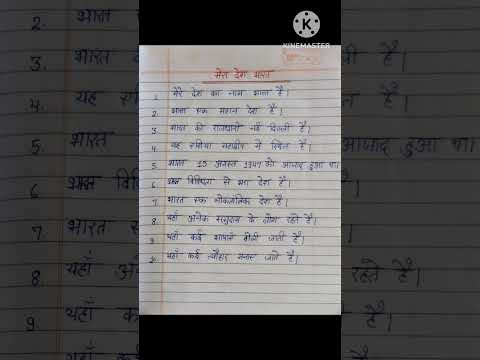 KINEMASTER
मेरा देश भारत
1. मेरे देश का नाम भारत है।
2. भारत एक महान देश है।
3. भारत की राजधानी नई दिल्ली है।
4. यह एशिया महाद्वीप में स्थित है।
5. भारत 15 अगस्त 1947 को आजाद हुआ था।
6. भारत विविधता से भरा देश है।
7. भारत एक लोकतांत्रिक देश है।
8. यहाँ अनेक समुदाय के लोग रहते है।
9. यहाँ कई भाषाएं बोली जाती है।
10. यहाँ कई त्यौहार मनाए जाते है।
2. भारत
3. भारत है।
4. यह
5. भारत आजाद हुआ था।
6.
7. भारत
8. यहाँ रहते है।
9. यहाँ है।